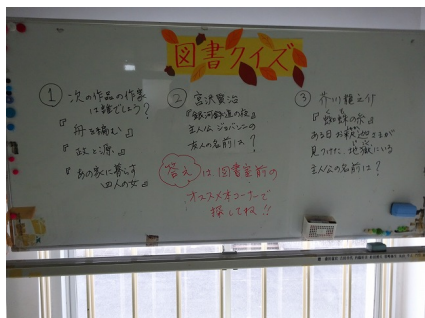 図書クイズ
① 次の作品の作家
は誰でしょう?
『舟を編む』
『政と源』
『あの家に暮らす
四人の女』
② 宮沢賢治
『銀河鉄道の夜』
主人公 ジョバンニの
友人の名前は?
③ 芥川龍之介
『蜘蛛の糸』
ある日お釈迦さまが
見つけた、地獄にいる
主人公の名前は?
答え は 図書室前の
オススメ本コーナーで
探してね!!